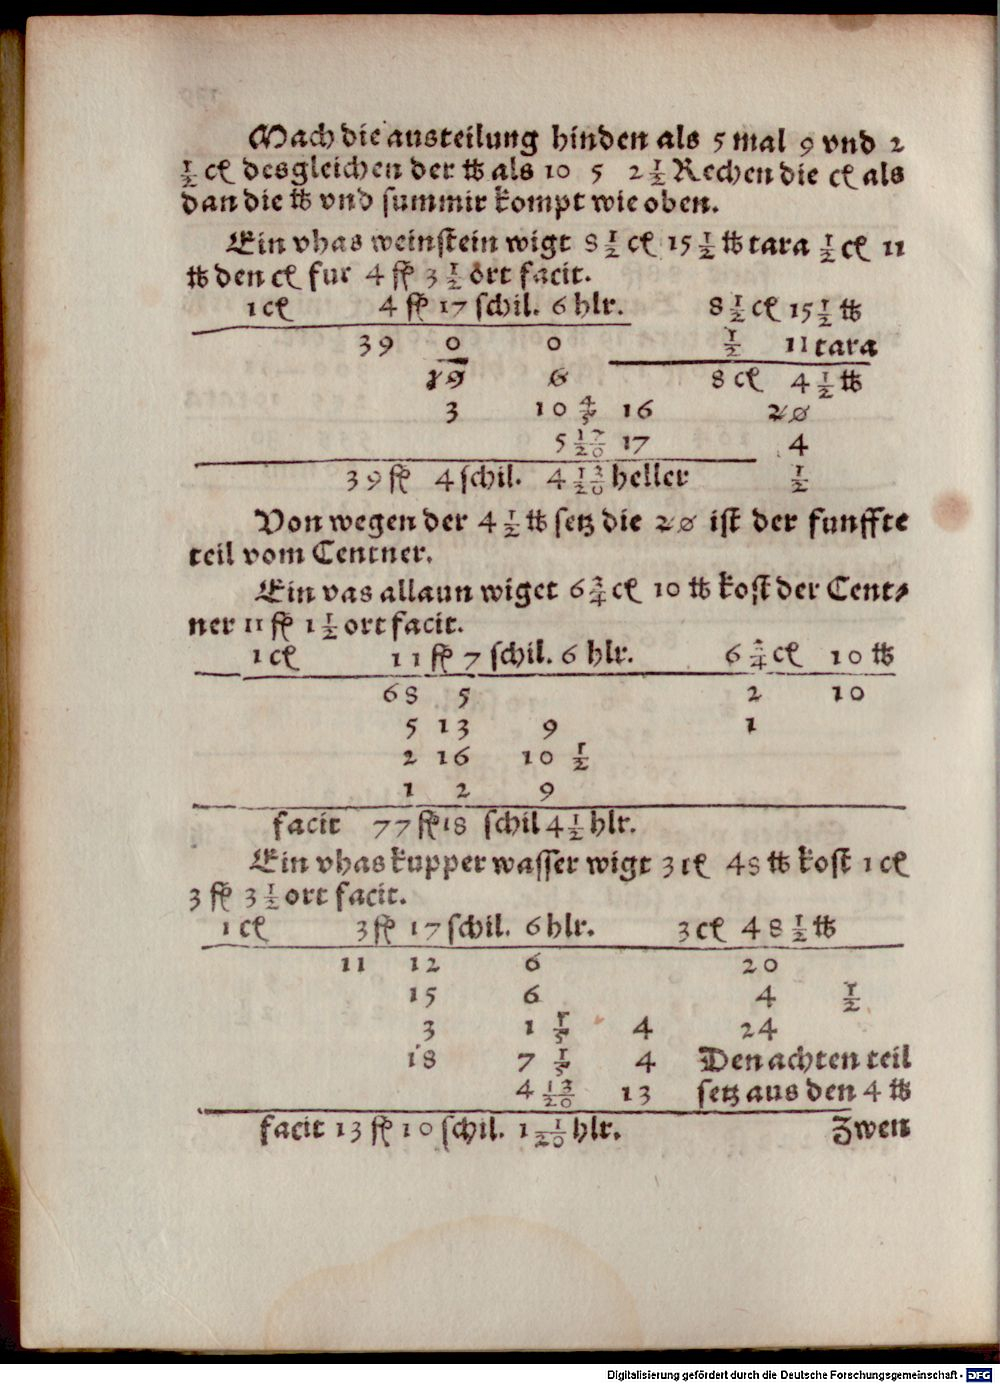 Mach die austeilung hinden als 5 mal 9 vnd 2
1/2 cł desgleichen der ℔ als 10 5 2 1/2 Rechen die cł als
dan die ℔ vnd summir kompt wie oben.
Ein vhas weinstein wigt 8 1/2 cł 15 1/2 ℔ tara 1/2 cł 11
℔ den cł fur 4 fl 3 1/2 ort facit.
1 cł 4 fl 17 schil. 6 hlr. 8 1/2 cł 15 1/2 ℔
39 0 0 1/2 11 tara
19 6 8 cł 4 1/2 ℔
3 10 4/5 16 20
5 17/20 17 4
39 fl 4 schil. 4 13/20 heller 1/2
Von wegen der 4 1/2 ℔ setz die 20 ist der funffte
teil vom Centner.
Ein vas allaun wiget 6 3/4 cł 10 ℔ kost der Cent⸗
ner 11 fl 1 1/2 ort facit.
1 cł 11 fl 7 schil. 6 hlr. 6 3/4 cł 10 ℔
68 5 2 10
5 13 9 1
2 16 10 1/2
1 2 9
facit 77 fl 18 schil 4 1/2 hlr.
Ein vhas kupper wasser wigt 3 cł 48 ℔ kost 1 cł
3 fl 3 1/2 ort facit.
1 cł 3 fl 17 schil. 6 hlr. 3 cł 48 1/2 ℔
11 12 6 20
15 6 4 1/2
3 1 1/5 4 24
18 7 1/5 4 Den achten teil
4 13/20 13 setz aus den 4 ℔
facit 13 fl 10 schil. 1 1/20 hlr. Zwen
Digitalisierung gefördert durch die Deutsche Forschungsgemeinschaft - DFG